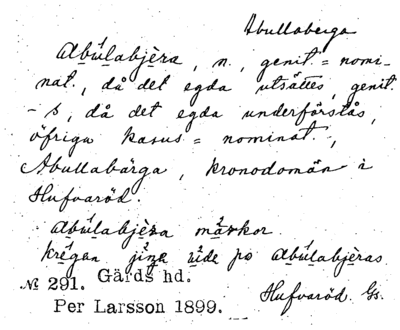 Abullaberga
Abúlabjèra, n., genit. = nomi-
nat., då det egda utsättes, genit.
- s, då det egda underförstås,
öfriga kasus = nominat.,
Abullabärga, kronodomän i
Hufvaröd.
Abúlabjèra márkor.
jina ride po Abúlabjèras
№ 291. Gärds hd.
Per Larsson 1899. Hufvaröd. Gs.